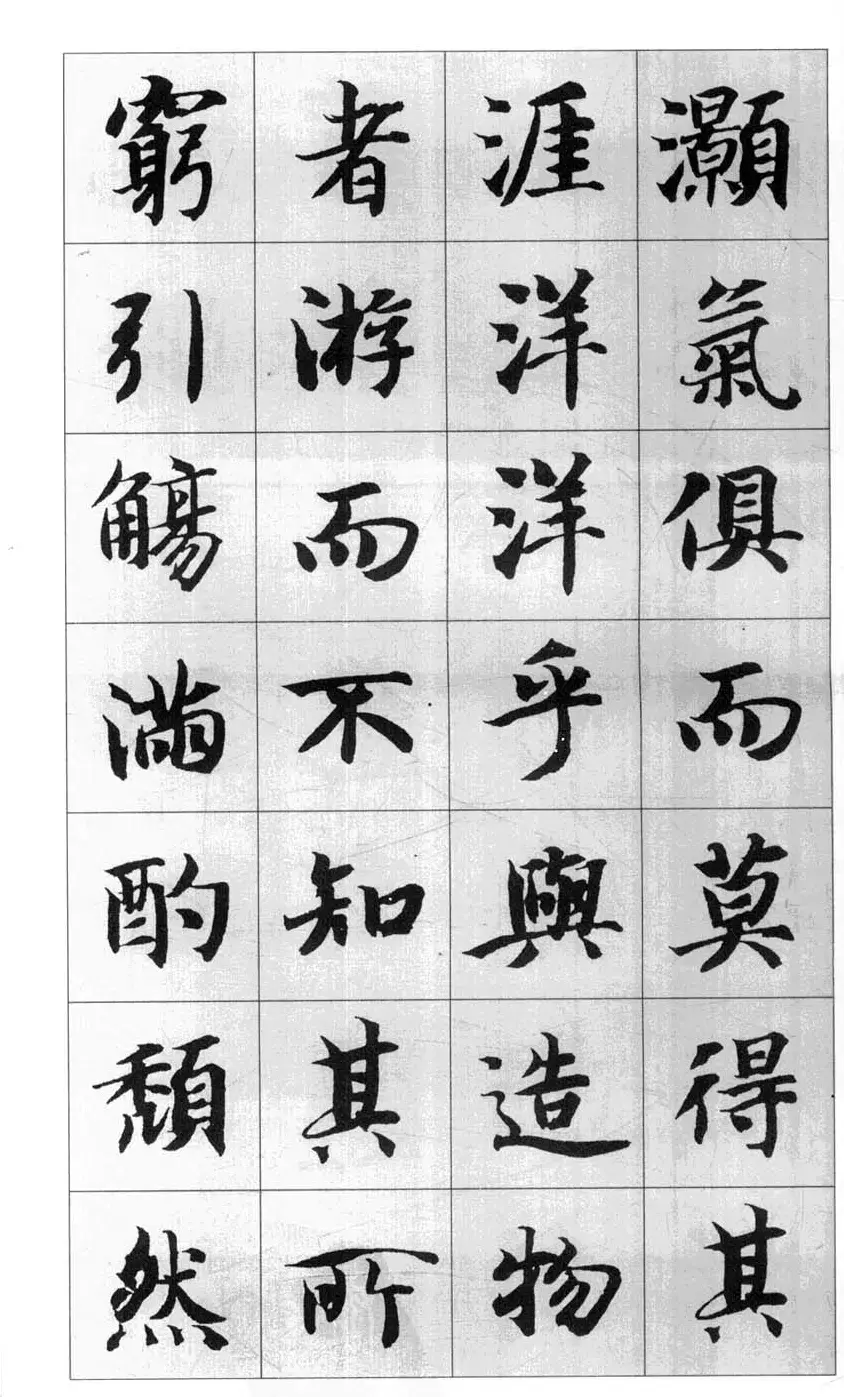 灝氣俱而莫得其
涯洋洋乎與造物
者游而不知其所
窮引觴滿酌頹然